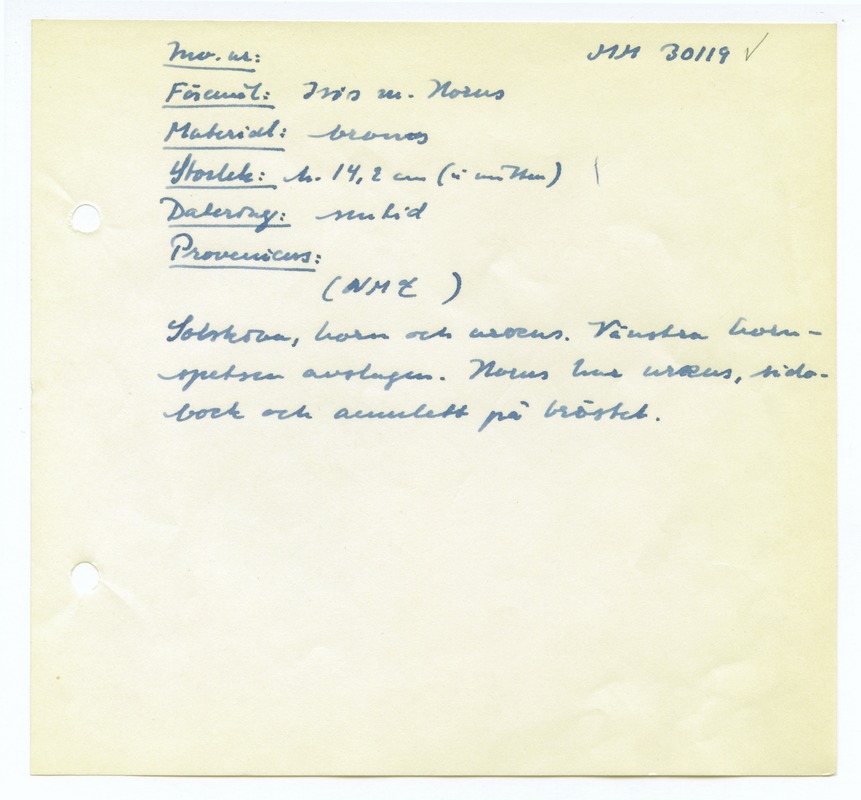 Inv. nr: MM 30119 ✓
Föremål: Isis m. Horus
Material: brons
Storlek: h. 14,2 cm (u mitten)
Datering: sentid
Proveniens:
(NME )
Solskiva, horn och uræus. Vänstra horn-
spetsen avslagen. Horus har uræus, sido-
lock och amulett på bröstet.